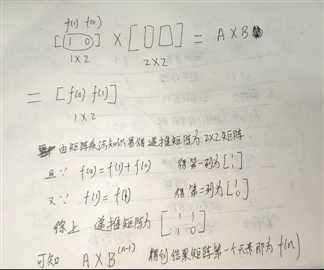 f(1) f(0)
[ 1 0 ] × [ ] = A × B
1×2 2×2
= [ f(2) f(1) ]
1×2
由矩阵乘法知识易得递推矩阵为 2×2矩阵.
且∵ f(2) = f(1) + f(0) 得第一列为 [1 1]
又∵ f(1) = f(1) 得第二列为 [1 0]
综上 递推矩阵为 [1 1 1 0]
可知 A × B^(n-1) 得到结果矩阵第一个元素即为 f(n)